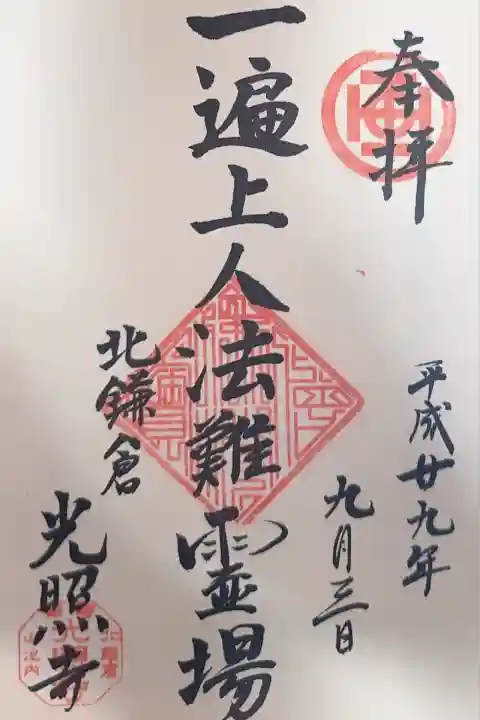 奉拝
平成廿九年
九月三日
一遍上人法難霊場
北鎌倉
光照寺